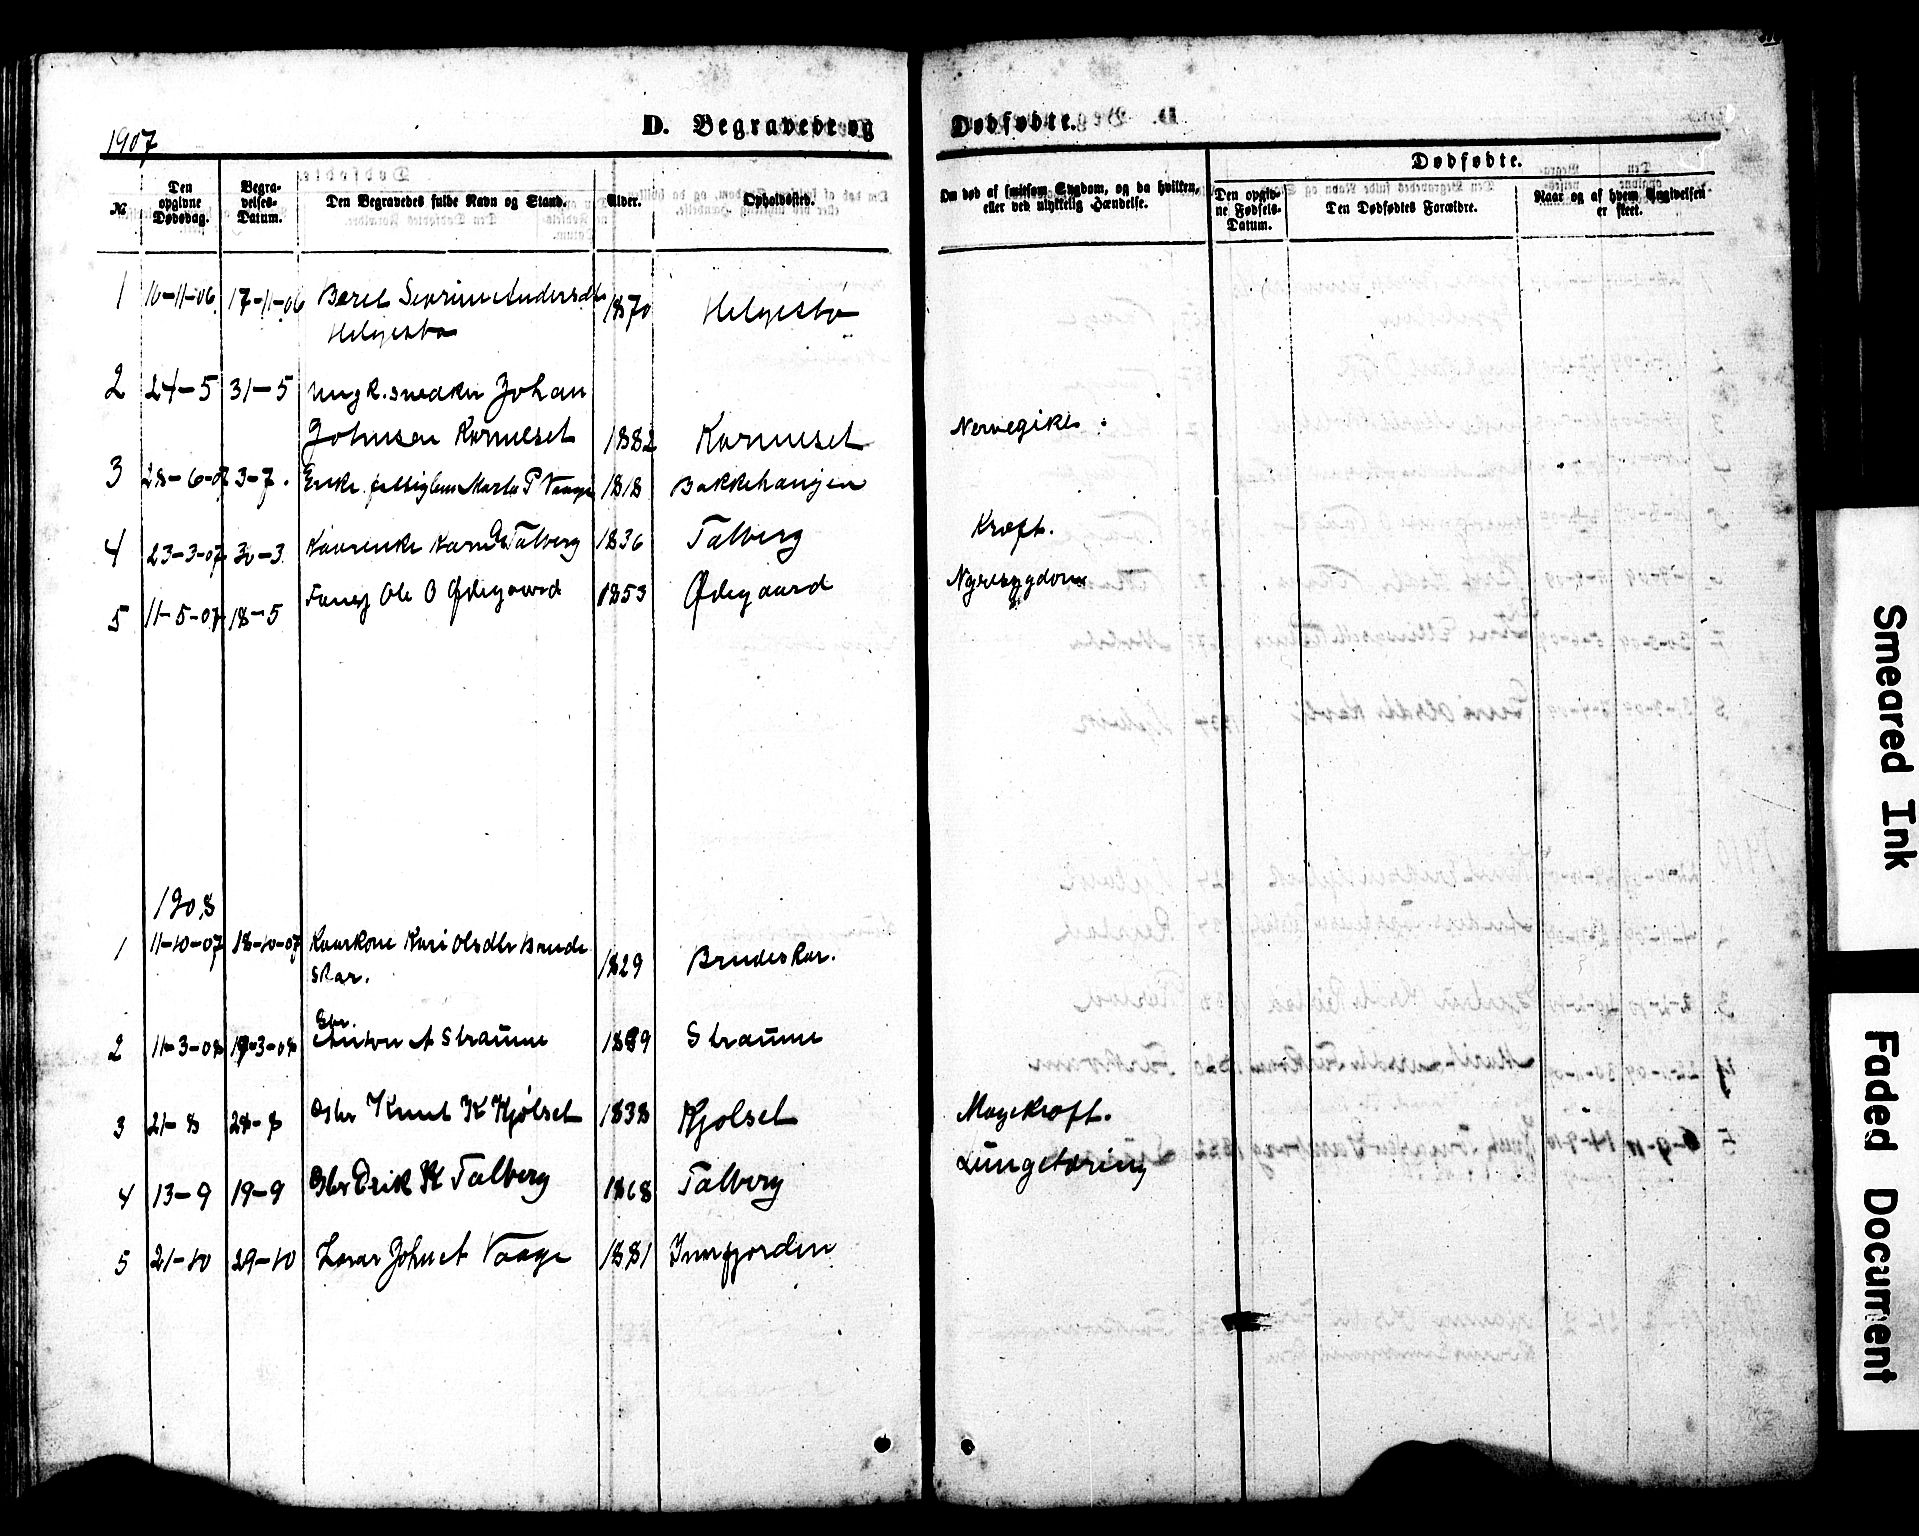 1907
D. Begravede og Dødfødte.
No.
Den opgivne Dødsdag.
Begravelses-Datum.
Den Begravedes fulde Navn og Stand.
Alder.
Opholdssted.
Om død af smitsom Sygdom, og da hvilken, eller ved ulykkelig Hændelse.
Dødfødte.
Den opgivne Fødsels-Datum.
Den Dødfødtes Forældre.
Naar og af hvem Angivelsen er skeet.
1 10-11-06 17-11-06 Beret Sevrine Andersdtr 1870 Helgestø
Helgestø
2 24-5 31-5 Ungk. snedker Johan
Johnsen Korneset 1882 Korneset
3 28-6-07 3-7. Enke fattiglem Marta P Vaage 1818 Bakkehaugen
4 23-3-07 30-3 Talberg 1836 Talberg Kræft.
5 11-5-07 18-5 Ole O Ødegaard 1853 Ødegaard Nyresygdom
1908
1 11-10-07 18-10-07 Kaarkone Kari Olsdtr Brude
skar. 1829 Brudeskar.
2 11-3-08 19-3-08 Gbr. Anton A Straume 1889 Straume
3 21-8 28-8 Knut K Kjølset 1838 Kjølset Mavekræft.
4 13-9 19-9 Erik K Talberg 1868 Talberg Lungetæring
5 21-10 29-10 Vaage 1881 Innfjorden
Smeared Ink
Faded Document